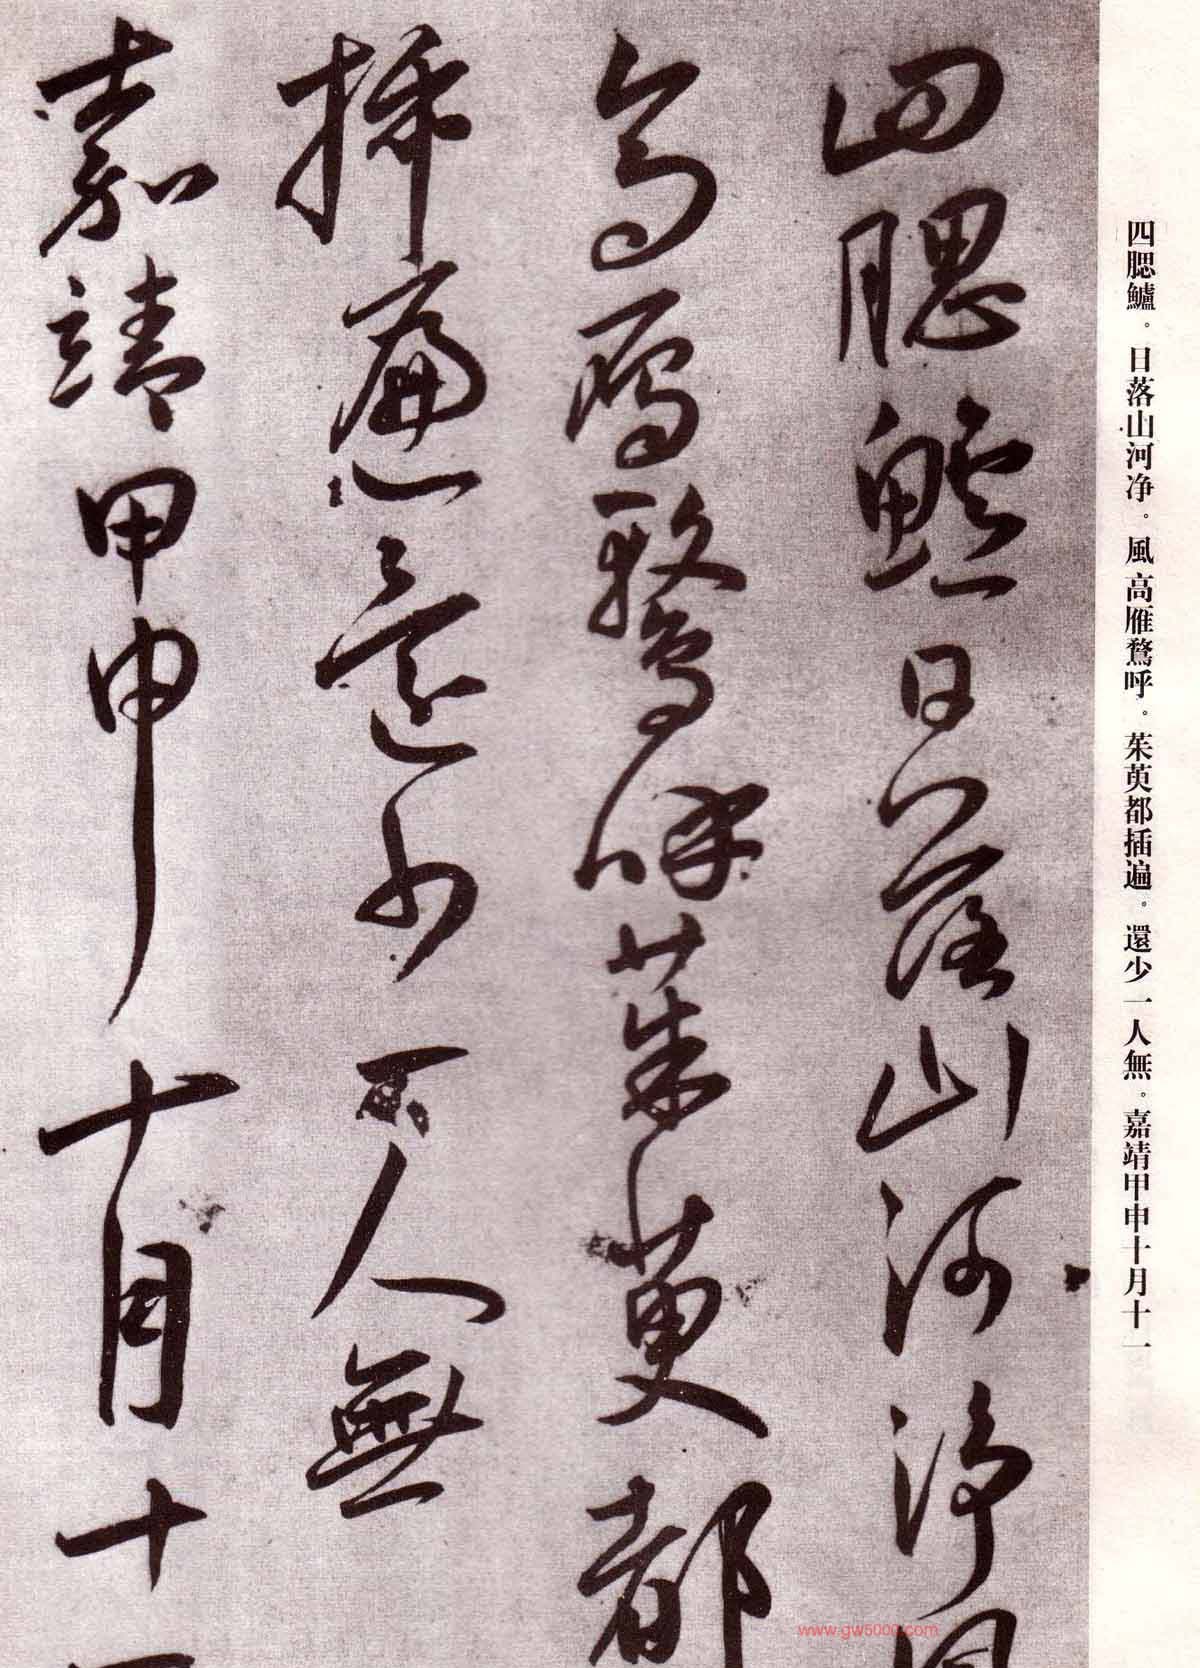 四腮鱸。日落山河净。風高雁鶩呼。茱萸都插遍。還少一人無。嘉靖甲申十月十一
四腮鱸日落山河净風
高雁鶩呼茱萸都
插遍還少一人無
嘉靖甲申十月十一
www.gw5000.com